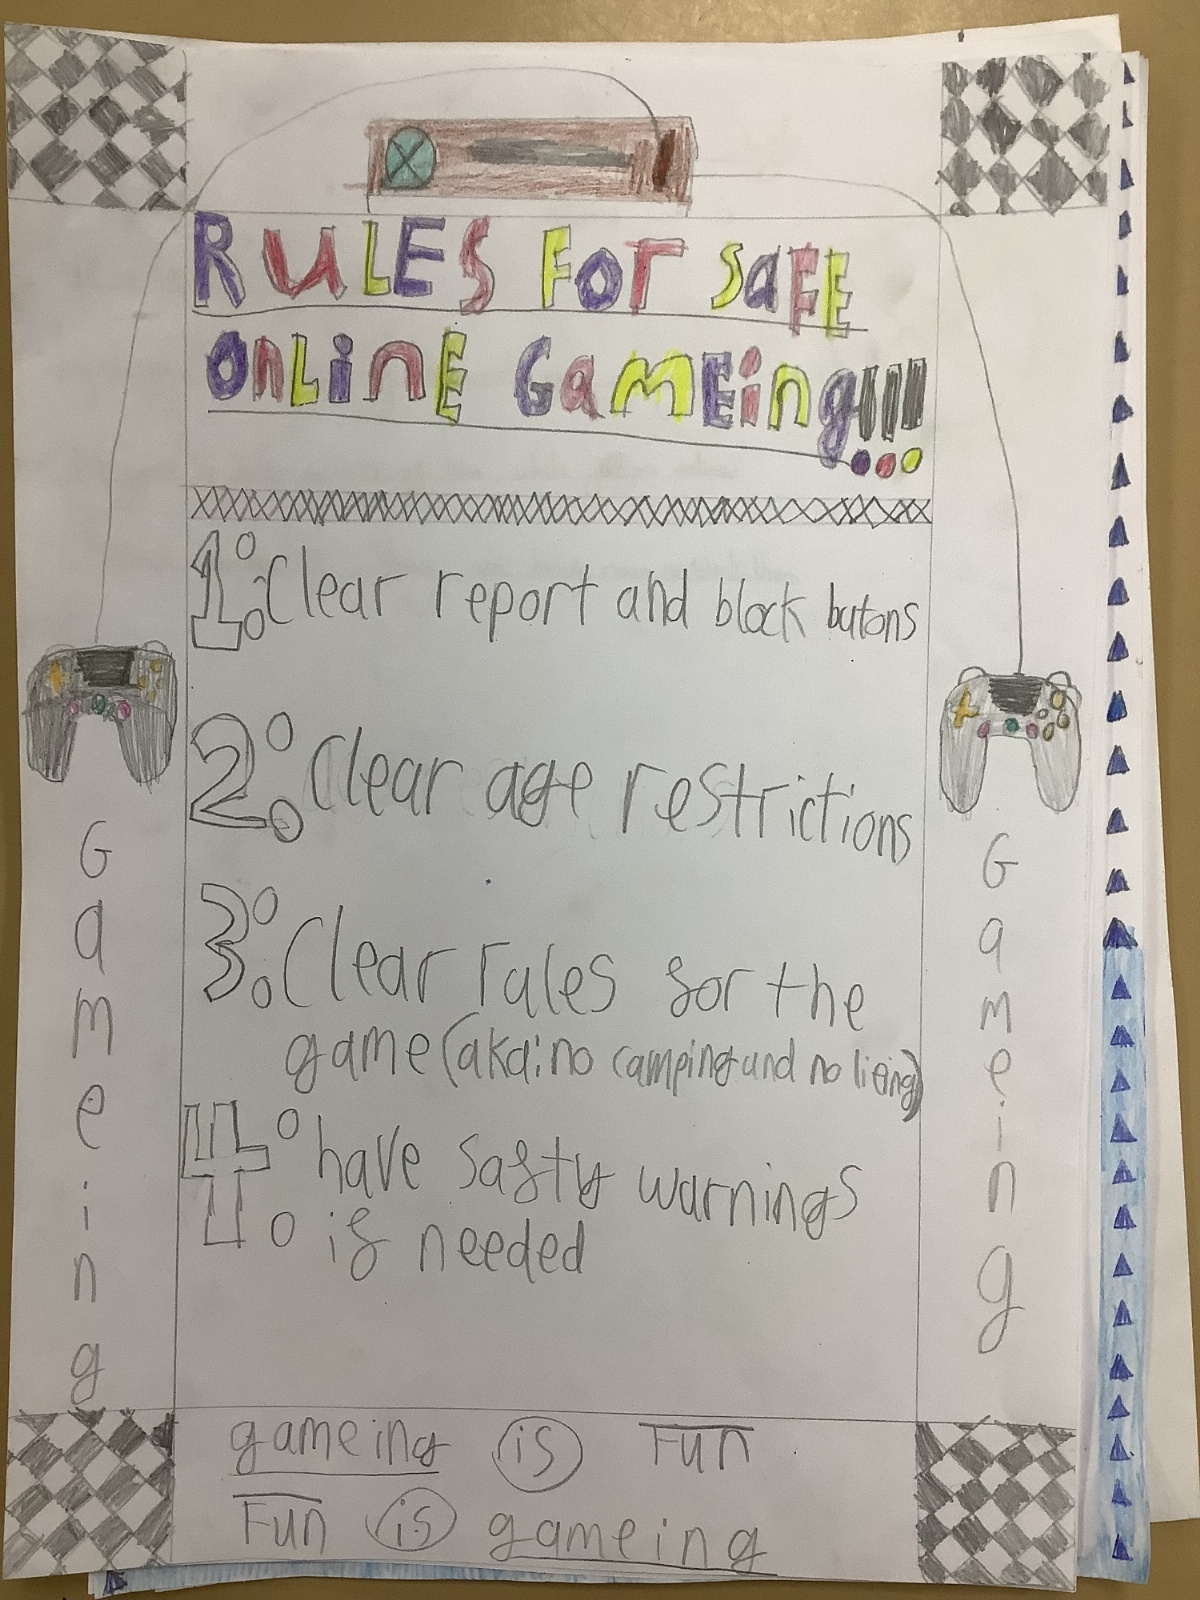 RULES FOR SAFE
ONLINE GAMEing!!!
1. Clear report and block butons
2. Clear age restrictions
3. Clear rules for the
game (aka: no camping and no lieing)
4. have safty warnings
if needed
Gameing
Gameing
gameing is Fun
Fun is gameing